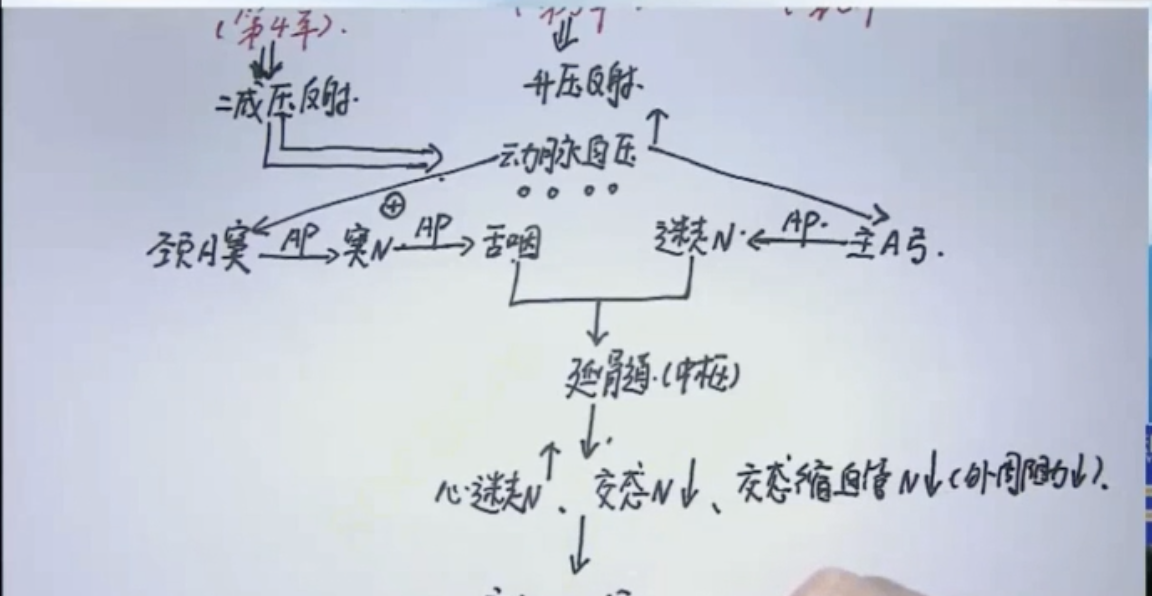 (第4军).
=减压反射.
升压反射.
动脉血压↑
⊕
颈A窦 AP→ 窦N AP→ 舌咽
迷走N ←AP. 主A弓.
延髓 (中枢)
心迷走N↑、交感N↓、交感缩血管N↓(外周阻力↓).